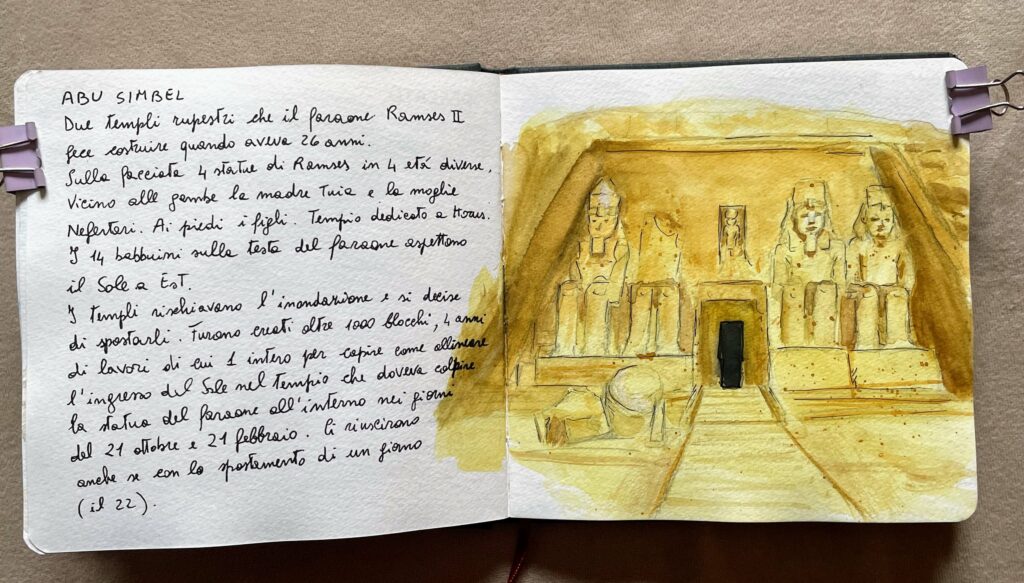 ABU SIMBEL
Due templi rupestri che il faraone Ramses II
fece costruire quando aveva 26 anni.
Sulla facciata 4 statue di Ramses in 4 età diverse.
Vicino alle gambe la madre Tuia e la moglie
Nefertari. Ai piedi i figli. Tempio dedicato a Horus.
I 14 babbuini sulla testa del faraone aspettano
il Sole a EST.
I templi rischiavano l'inondazione e si decise
di spostarli. Furono creati oltre 1000 blocchi, 4 anni
di lavori di cui 1 intero per capire come allineare
l'ingresso del Sole nel tempio che doveva colpire
la statua del faraone all'interno nei giorni
del 21 ottobre e 21 febbraio. Ci riuscirono
anche se con lo spostamento di un giorno
(il 22).